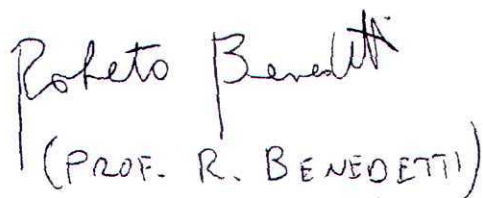 Roberto Benedetti
(PROF. R. BENEDETTI)